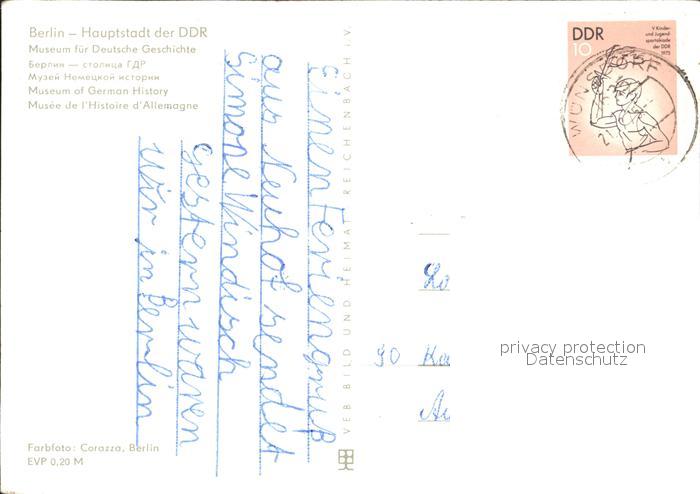 Berlin – Hauptstadt der DDR
Museum für Deutsche Geschichte
Берлин — столица ГДР
Музей Немецкой истории
Museum of German History
Musée de l'Histoire d'Allemagne
Einen Feriengruß
aus Neuhof sendet
Simone Windisch
gestern waren
wir in Berlin
Farbfoto: Corazza, Berlin
EVP 0,20 M
VEB BILD UND HEIMAT REICHENBACH i.V.
DDR
10
V. Kinder-
und Jugend-
spartakiade
der DDR
1975
WÜNSDORF
Lo
90 Ka
privacy protection
Datenschutz